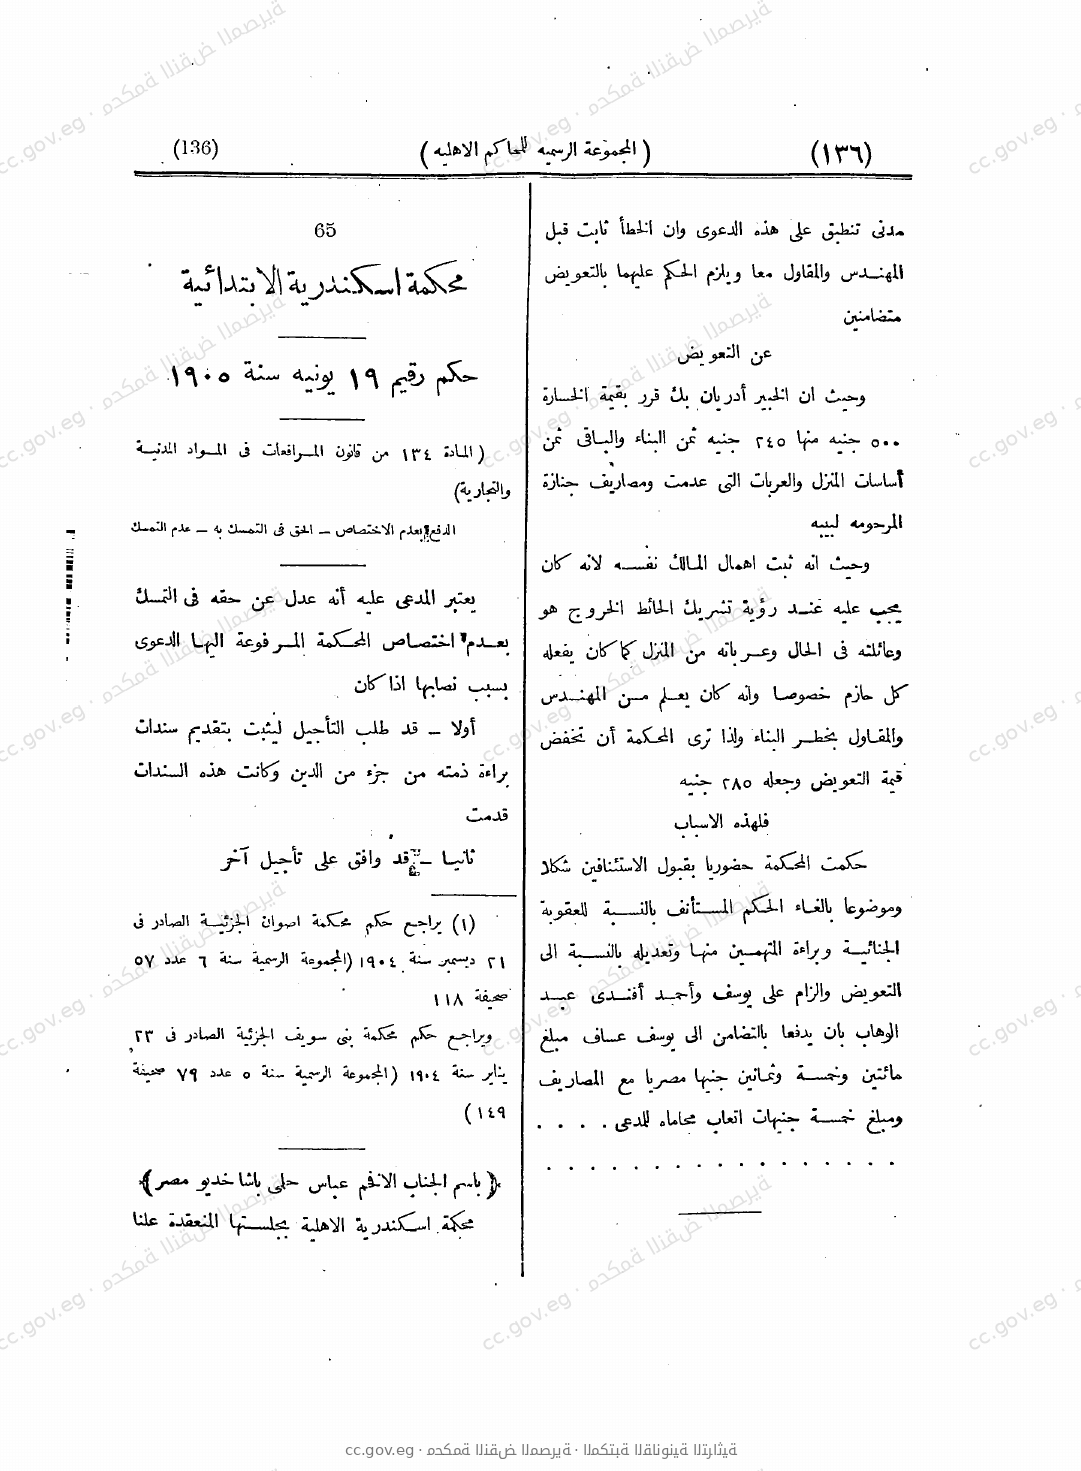 (١٣٦)
( المجموعة الرسميه للمحاكم الاهليه )
(136)
مدنى تنطبق على هذه الدعوى وان الخطأ ثابت قبل
المهندس والمقاول معا ويلزم الحكم عليهما بالتعويض
متضامنين
عن التعويض
وحيث ان الخبير أدريان بك قرر بقيمة الخسارة
٥٠٠ جنيه منها ٢٤٥ جنيه ثمن البناء والباقى ثمن
أساسات المنزل والعربات التى عدمت ومصاريف جنازة
المرحومه لبيبه
وحيث انه ثبت اهمال المالك نفسه لانه كان
يجب عليه عند رؤية تشريك الحائط الخروج هو
وعائلته فى الحال وعرباته من المنزل كما كان يفعله
كل حازم خصوصا وانه كان يعلم من المهندس
والمقاول بخطر البناء ولذا ترى المحكمة أن تخفض
قيمة التعويض وجعله ٢٨٥ جنيه
فلهذه الاسباب
حكمت المحكمة حضوريا بقبول الاستئنافين شكلا
وموضوعا بالغاء الحكم المستأنف بالنسبة للعقوبة
الجنائية وبراءة المتهمين منها وتعديله بالنسبة الى
التعويض والزام على يوسف وأحمد أفندى عبد
الوهاب بان يدفعا بالتضامن الى يوسف عساف مبلغ
مائتين وخمسة وثمانين جنيها مصريا مع المصاريف
ومبلغ خمسة جنيهات اتعاب محاماه للمدعى . . . .
. . . . . . . . . . . . . . . . .
65
محكمة اسكندرية الابتدائية
حكم رقيم ١٩ يونيه سنة ١٩٠٥
( المادة ١٣٤ من قانون المرافعات فى المواد المدنية
والتجارية)
الدفع بعدم الاختصاص – الحق فى التمسك به – عدم التمسك
يعتبر المدعى عليه أنه عدل عن حقه فى التمسك
بعدم اختصاص المحكمة المرفوعة اليها الدعوى
بسبب نصابها اذا كان
أولا – قد طلب التأجيل ليثبت بتقديم سندات
براءة ذمته من جزء من الدين وكانت هذه السندات
قدمت
ثانيا – قد وافق على تأجيل آخر
(١) يراجع حكم محكمة اصوان الجزئية الصادر فى
٢١ ديسمبر سنة ١٩٠٤ (المجموعة الرسمية سنة ٦ عدد ٥٧
صحيفة ١١٨
ويراجع حكم محكمة بنى سويف الجزئية الصادر فى ٢٣
يناير سنة ١٩٠٤ (المجموعة الرسمية سنة ٥ عدد ٧٩ صحيفة
١٤٩)
﴿ باسم الجناب الافخم عباس حلمى باشا خديو مصر ﴾
محكمة اسكندرية الاهلية بجلستها المنعقدة علنا
cc.gov.eg · محكمة النقض المصرية · المكتبة القانونية التراثية